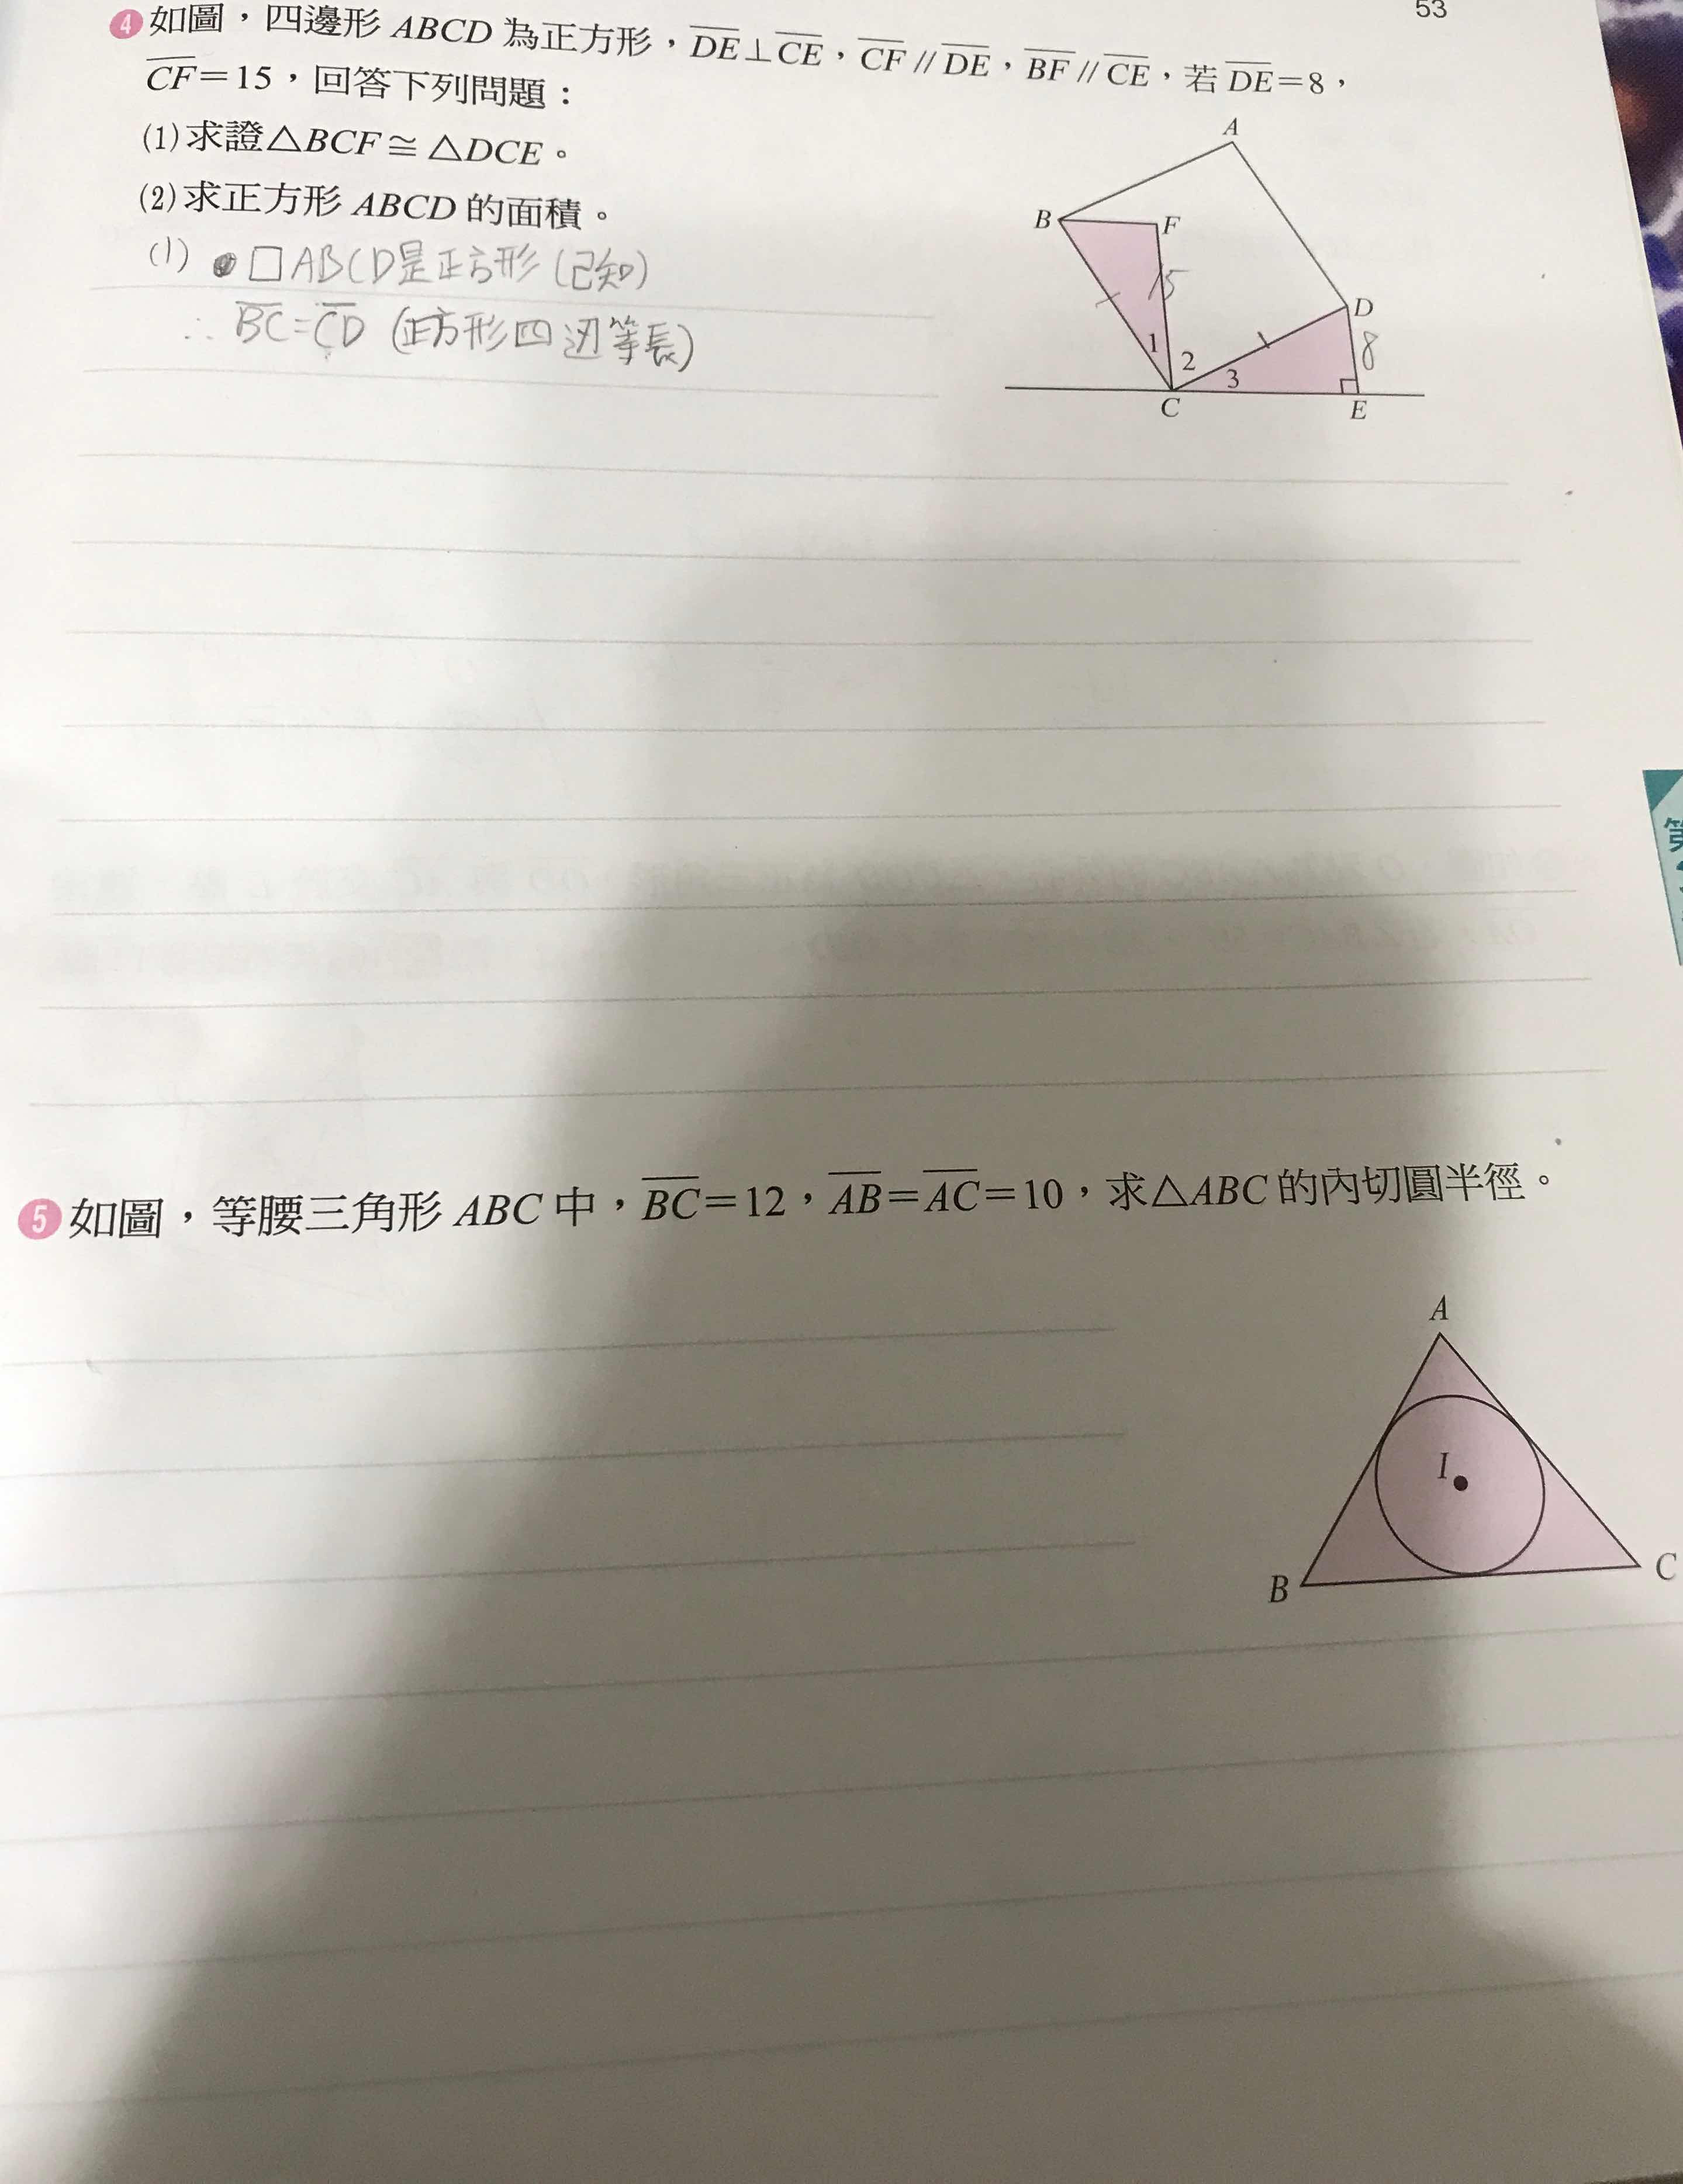 53
4 如圖，四邊形 ABCD 為正方形，DE⊥CE，CF // DE，BF // CE，若 DE=8，
CF=15，回答下列問題：
(1)求證△BCF≅△DCE。
(2)求正方形 ABCD 的面積。
(1) □ABCD是正方形(已知)
∴ BC=CD (正方形四边等長)
A
B
F
15
D
8
1
2
3
C
E
第
5 如圖，等腰三角形 ABC 中，BC=12，AB=AC=10，求△ABC 的內切圓半徑。
A
I
B
C